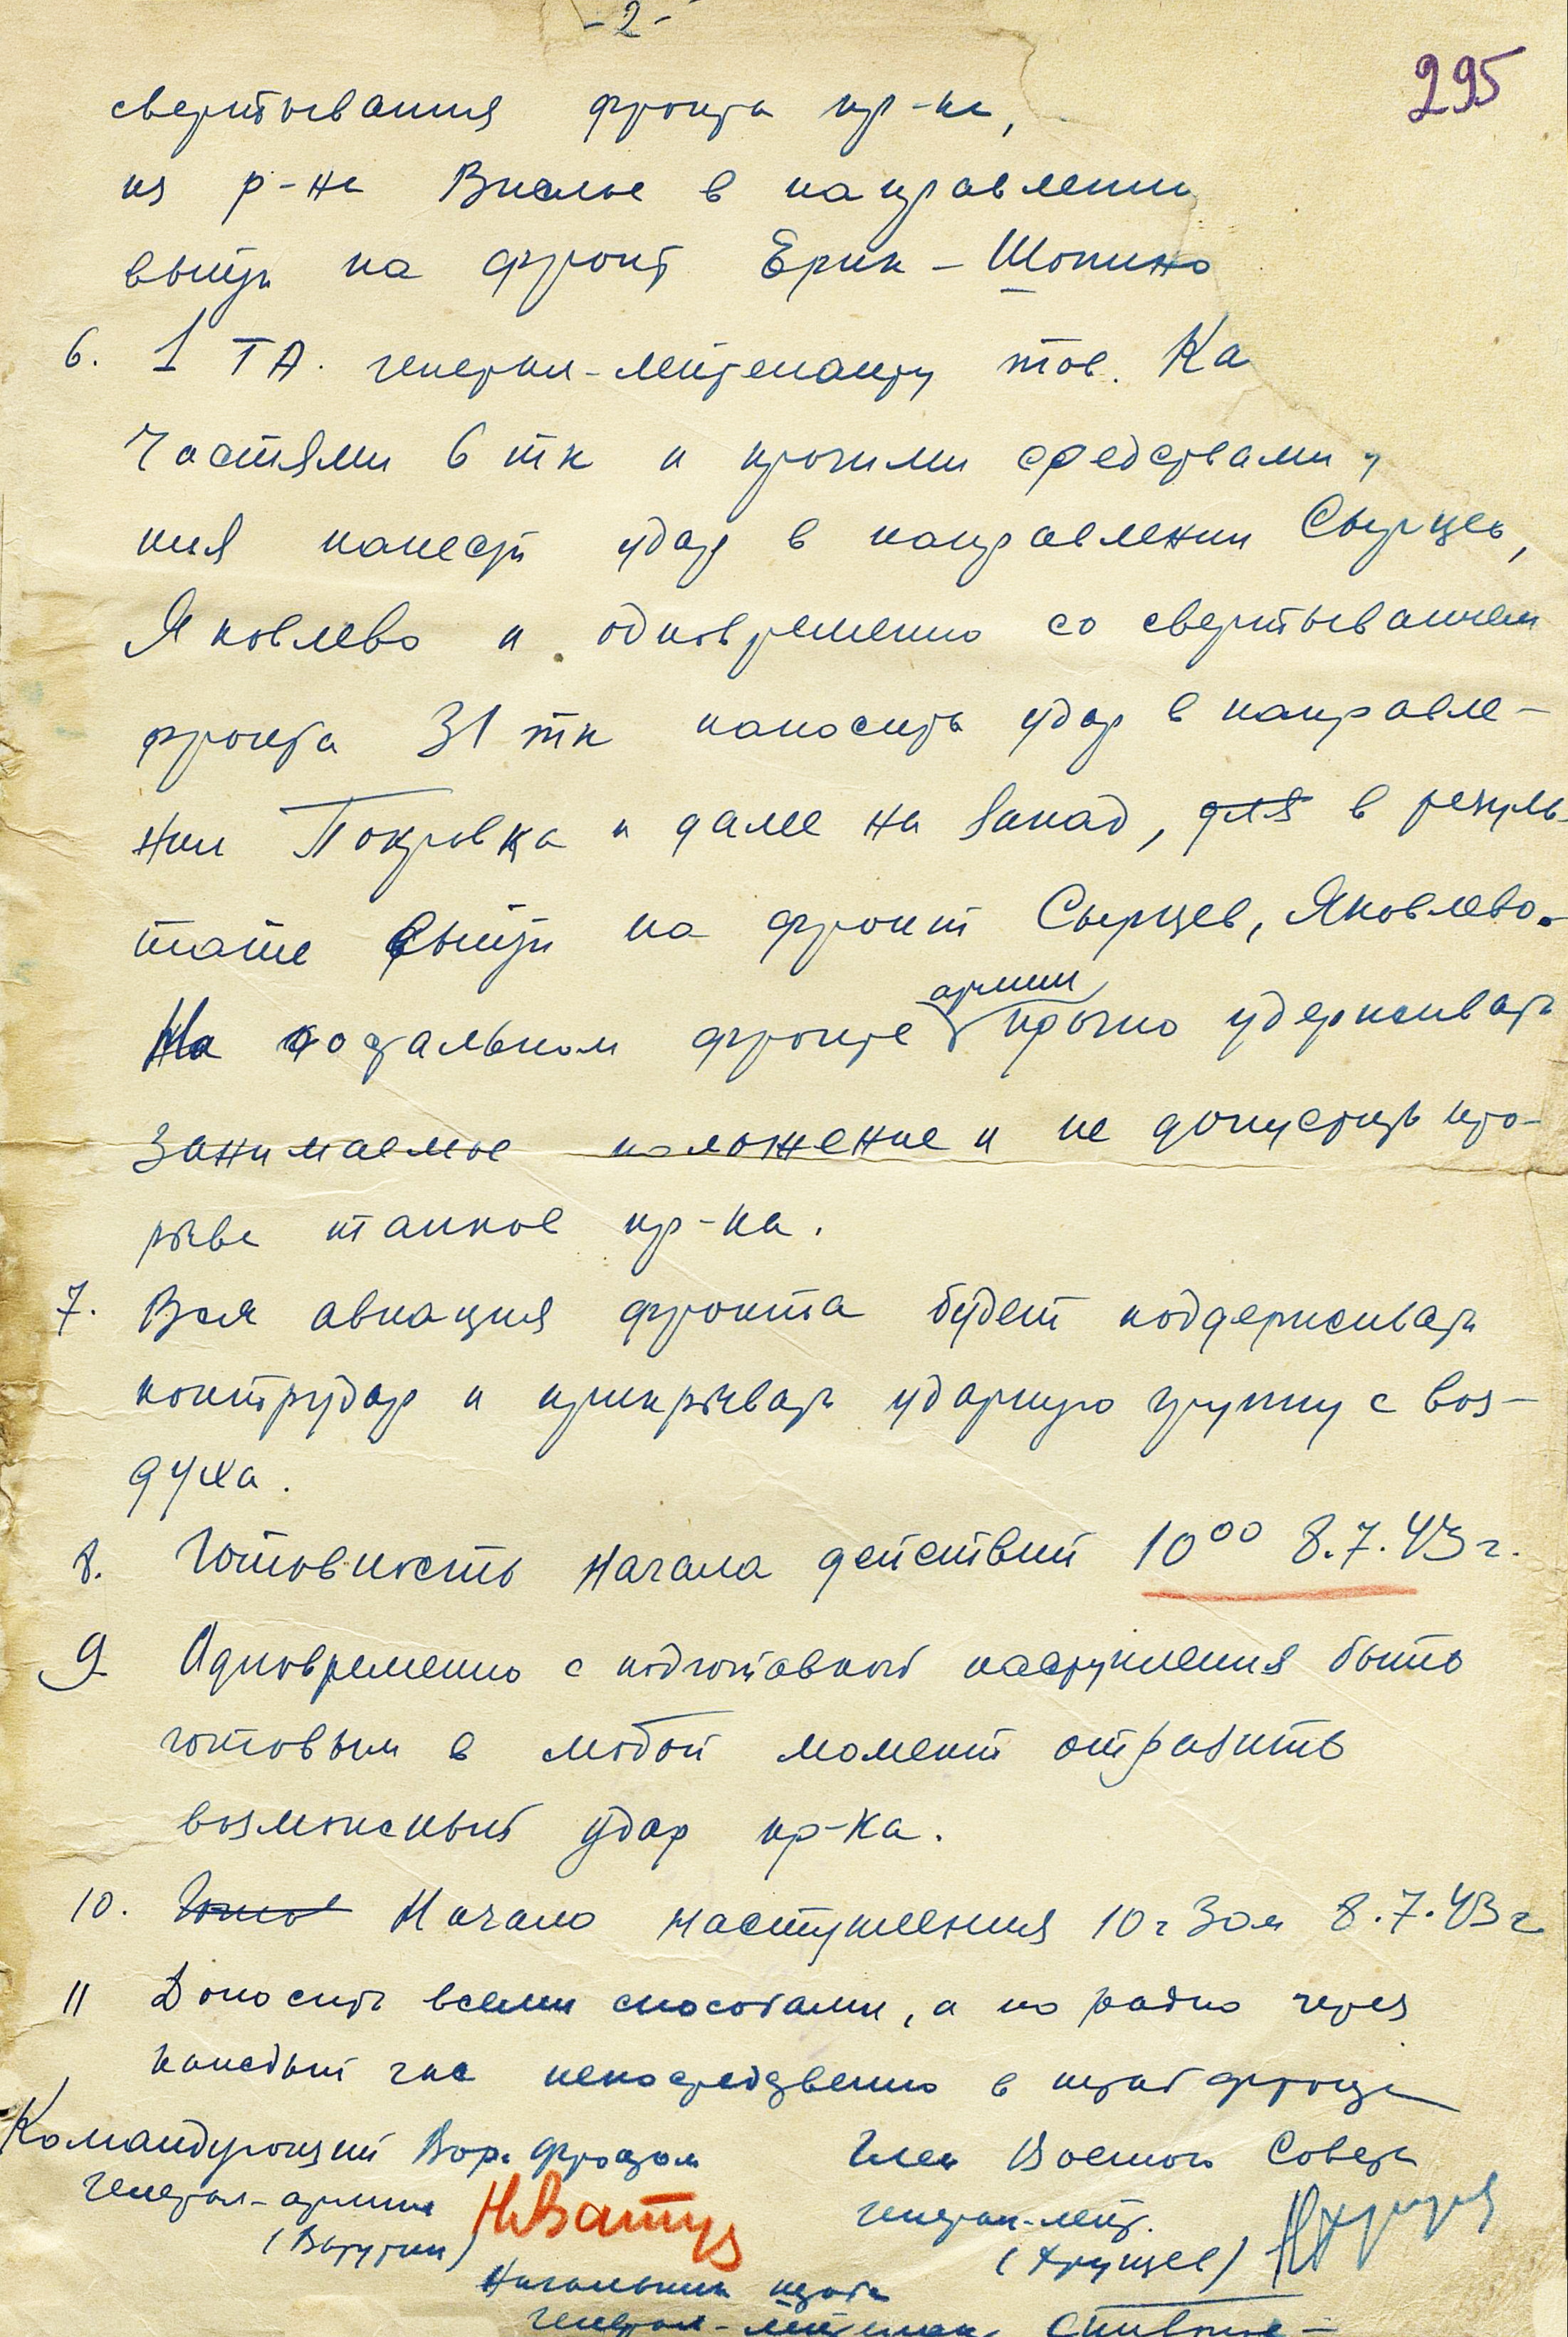 - 2 -
295
свертывания фронта пр-ка,
из р-на Вислое в направлении
выйти на фронт Ерик - Шопино
6. 1 ТА. генерал-лейтенанту тов. Ка
частями 6 тк и прочими средствами у
ния нанести удар в направлении Сырцев,
Яковлево и одновременно со свертыванием
фронта 31 тк наносить удар в направле-
нии Покровка и далее на запад, для в резуль-
тате выйти на фронт Сырцев, Яковлево.
армии
На остальном фронте прочно удерживать
занимаемое положение и не допустить про-
рыва танков пр-ка.
7. Вся авиация фронта будет поддерживать
контрудар и прикрывать ударную группу с воз-
духа.
8. Готовность начала действий 10 00 8.7.43 г.
9 Одновременно с подготовкой наступления быть
готовым в любой момент отразить
возможный удар пр-ка.
10. Готов Начало наступления 10 ч 30 м 8.7.43 г
11 Доносить всеми способами, а по радио через
каждый час непосредственно в штаб фронта
Командующий Вор. фронтом Член Военного Совета
генерал-армии НВату генерал-лейт.
(Ватутин) (Хрущев) НХрущев
Начальник штаба
генерал-лейтенант